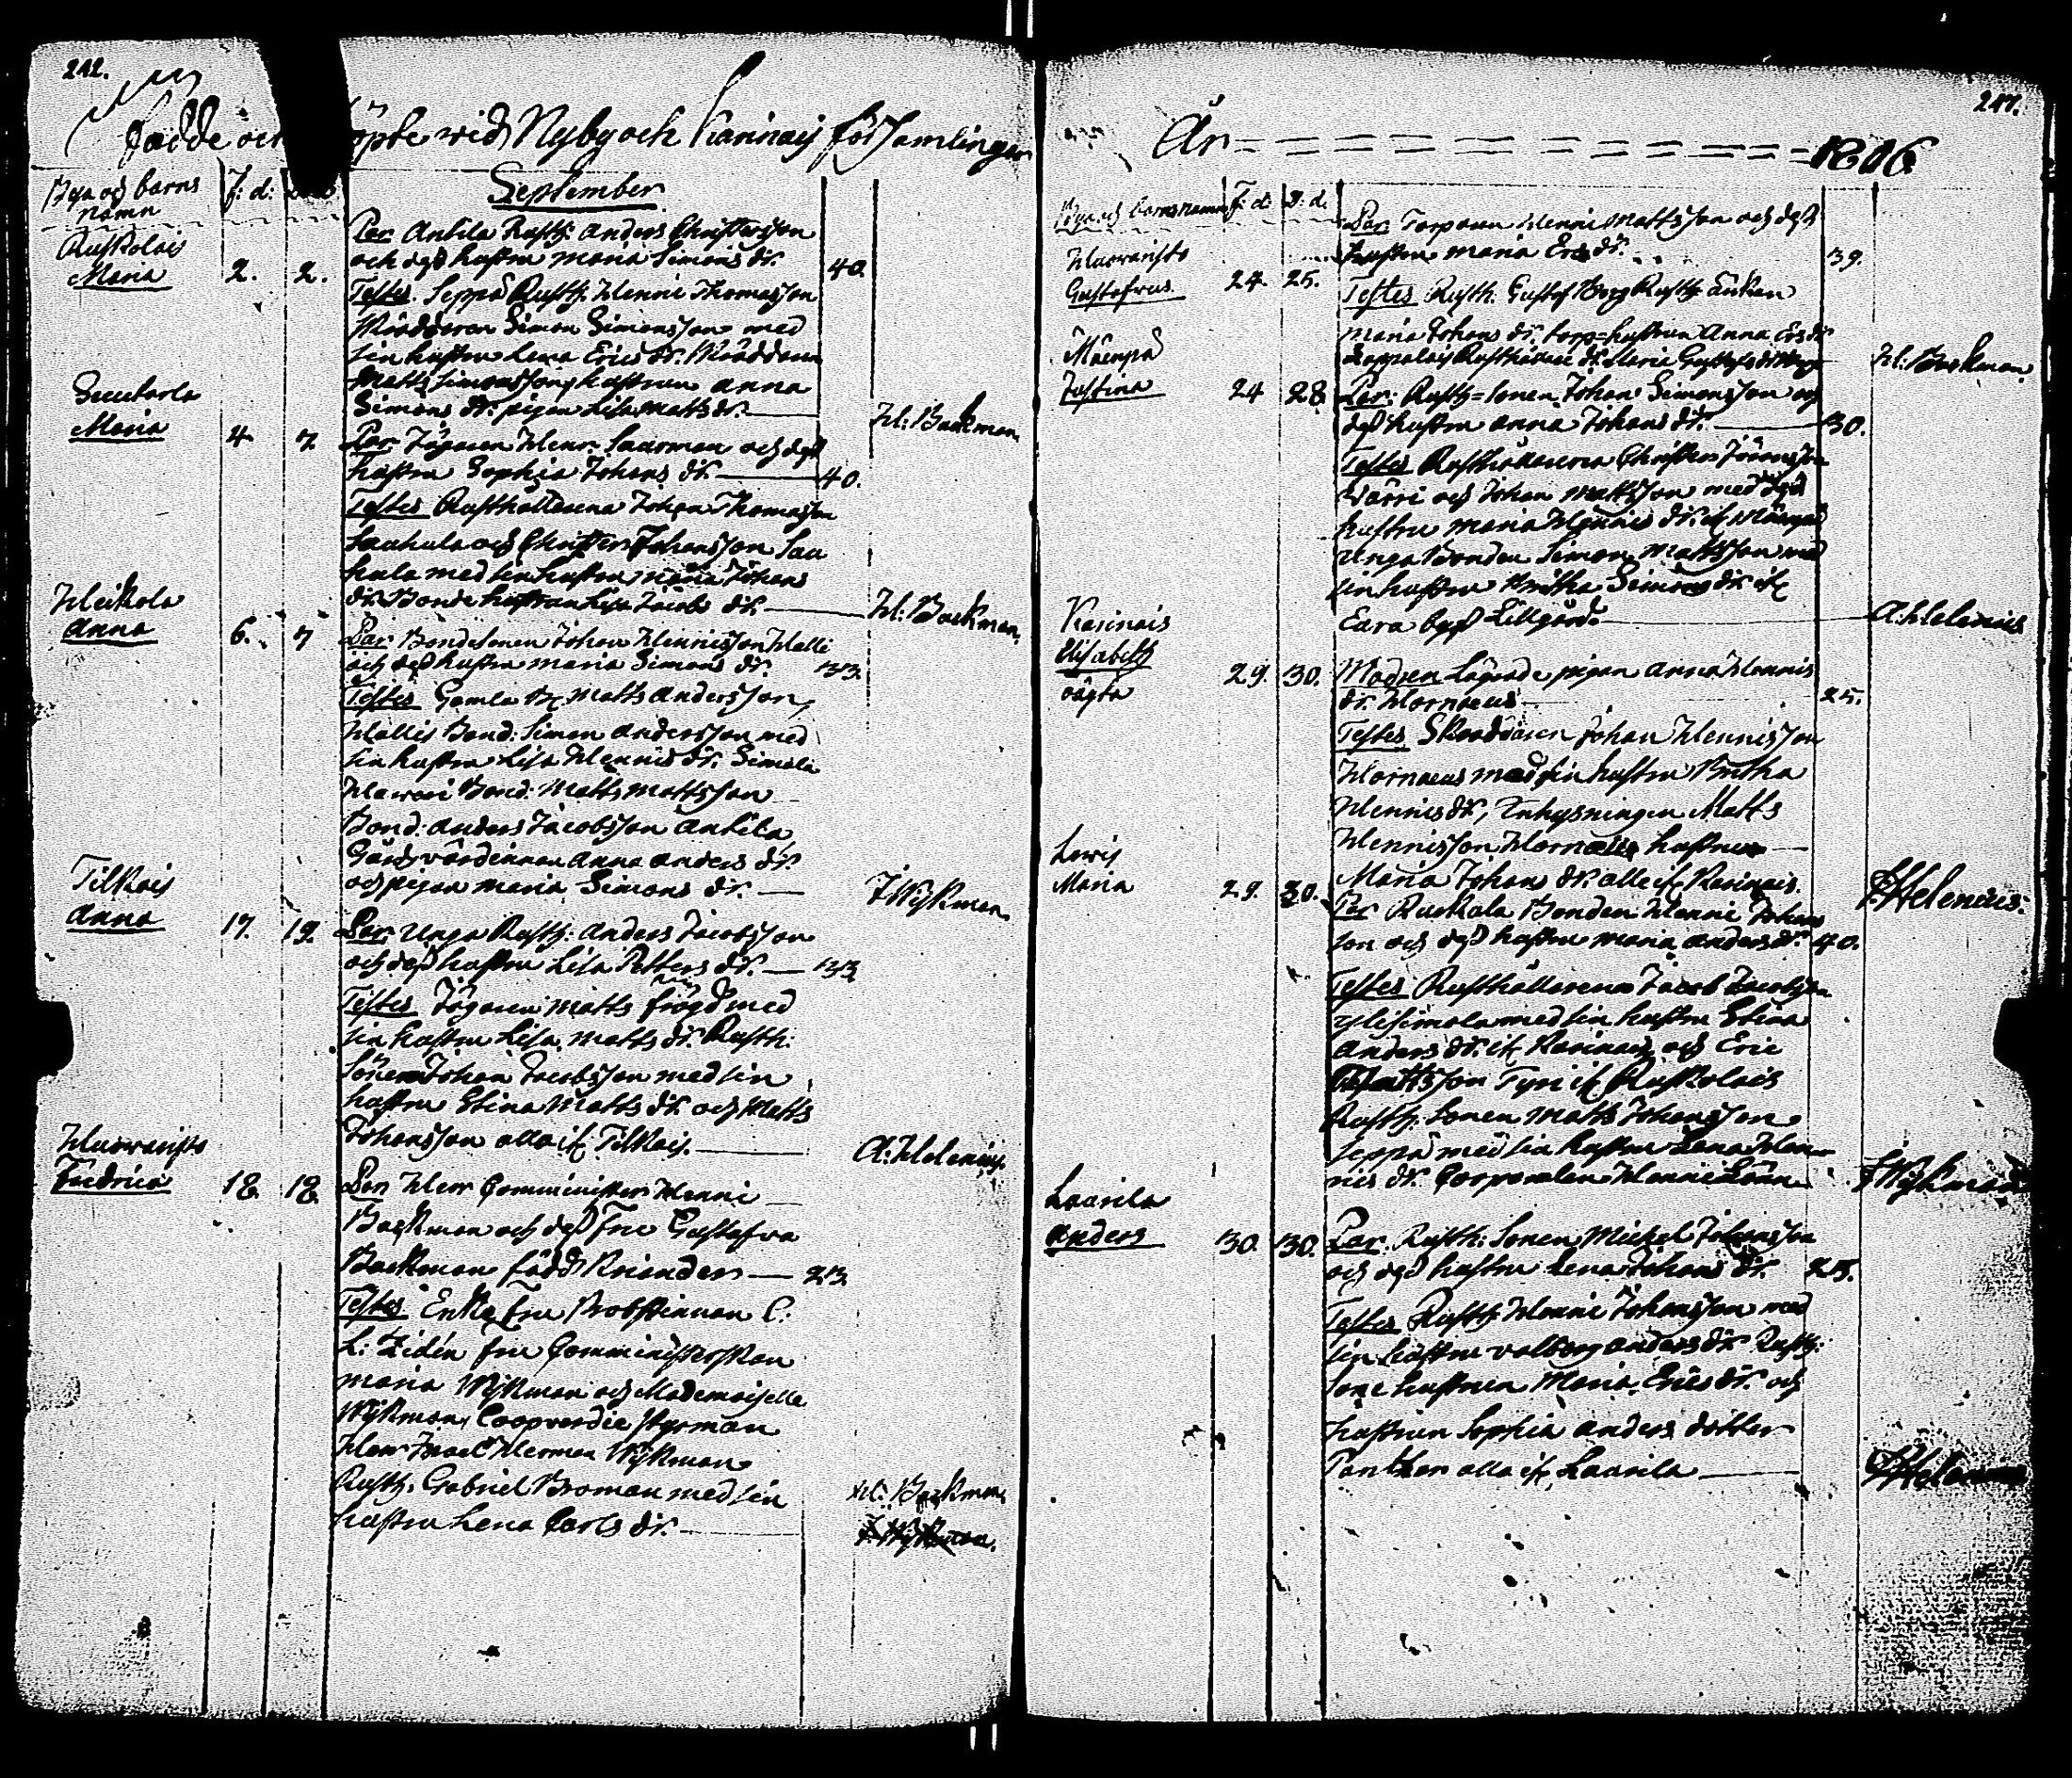 242.
Födde och döpte wid Nyby och Karinais församlingar
Byn och barns namn
F: d:
September
Ruskolais
Maria 2. 2.
Par Antila Rusth: Anders Christersson
och dess hustru Maria Simons dr. 40.
Testes. Seppä Rusth. Henric Thomasson
Simon Simonsson med
sin hustru Lena Erics dr.
Matts Simonssons hustru Anna
Simons dr. pigan Lisa Matts dr.
H: Backman.
Maria 4. 7.
Par Jägaren Henr. Saarman och dess
hustru Sophia Johans dr. 40.
Testes Rusthållarena Johan Thomasson
och Christer Johansson
med sin hustru Maria Johans
dr. Bonde hustrun Lisa Jacobs dr.
H: Backman.
Heikola
Anna 6. 7
Par Bondesonen Johan Henricsson
och dess hustru Maria Simons dr. 33.
Testes Gamle Matts Andersson,
Bond: Simon Andersson med
sin hustru Lisa Hennics dr. Simola
Bond: Matts Mattsson
Bond: Anders Jacobsson Antila
Gårdsvärdinnan Anna Anders dr.
och pigan Maria Simons dr.
J Wijkman.
Tilkais
Anna 17. 19.
Par: Unga Rusth: Anders Jacobsson
och dess hustru Lisa Petters dr. 33
Testes Jägaren Matts Fröjd med
sin hustru Lisa Matts dr. Rusth:
Sonen Johan Jacobsson med sin
hustru Stina Matts dr. och Matts
Johansson alla if. Tilkais.
A: Helenius.
Huowarista
Fredrica 18 18.
Par Herr Comminister Henric
Backman och dess Fru Gustafva
Backman född Kriander 23
Testes Enke Fru Probstinnan C:
L: Zidén fru Comministerskan
Maria Wijkman och Mademoiselle
Wijkman, Coopverdie styrman
Herr Israel Herman Wijkman
Rusth. Gabriel Broman med sin
hustru Lena Carls dr.
H: Backman
J: Wijkman.
247.
År 1806
Byn och barnsnamn F: d: D: d.
Huowarista
Gustafvus. 24. 25.
Par: Torparen Henric Mattsson och dess
hustru Maria Ers dr. 39.
Testes Rusth. Gustaf Rusth: änkan
Maria Johans dr. torp-hustrun Anna Ers dr
H: Backman.
Mäenpä
Justina 24 28
Par: Rusth-Sonen Johan Simonsson och
dess hustru Anna Johans dr. 30.
Testes Rusthållarena Christer
och Johan Mattsson med dess
hustru Maria Hennics dr. if Mäenpä
Unga Bonden Simon Mattsson med
sin hustru Britha Simons dr. if
Eura Lillgård.
A: Helenius
Karinais
Elisabeth
oägta 29. 30.
Modren Lägrade pigan Anna Hennics
dr. Hornaeus 25.
Testes Skräddaren Johan Hennicsson
Hornaeus med sin hustru Britha
Hennics dr, Inhysningen Matts
Hennicsson Hornaei hustru
Maria Johans dr. alle if. Karinais.
A Helenius.
Lewis
Maria 29. 30.
Par Ruskala Bonden Henric Johans
son och dess hustru Maria Anders dr. 40.
Testes Rusthållaren Jacob Jacobsson
Ylisimola med sin hustru Stina
Anders dr. if. Karinais och Eric
Mattsson Tyri if. Ruskolais
Rusth. Sonen Matts Johansson
Seppä med sin hustru Lena Hen
rics dr. Corporalen Henric
J Wijkman
Laurila
Anders 30. 30.
Par. Rusth: Sonen Michel Johansson
och dess hustru Lena Johans dr. 25.
Testes Rusth. Henric Johansson med
sin hustru Valborg Anders dr. Rusth:
Sone hustrun Maria Erics dr. och
hustrun Sophia Anders dotter
Panther alla if. Laurila
A Helenius